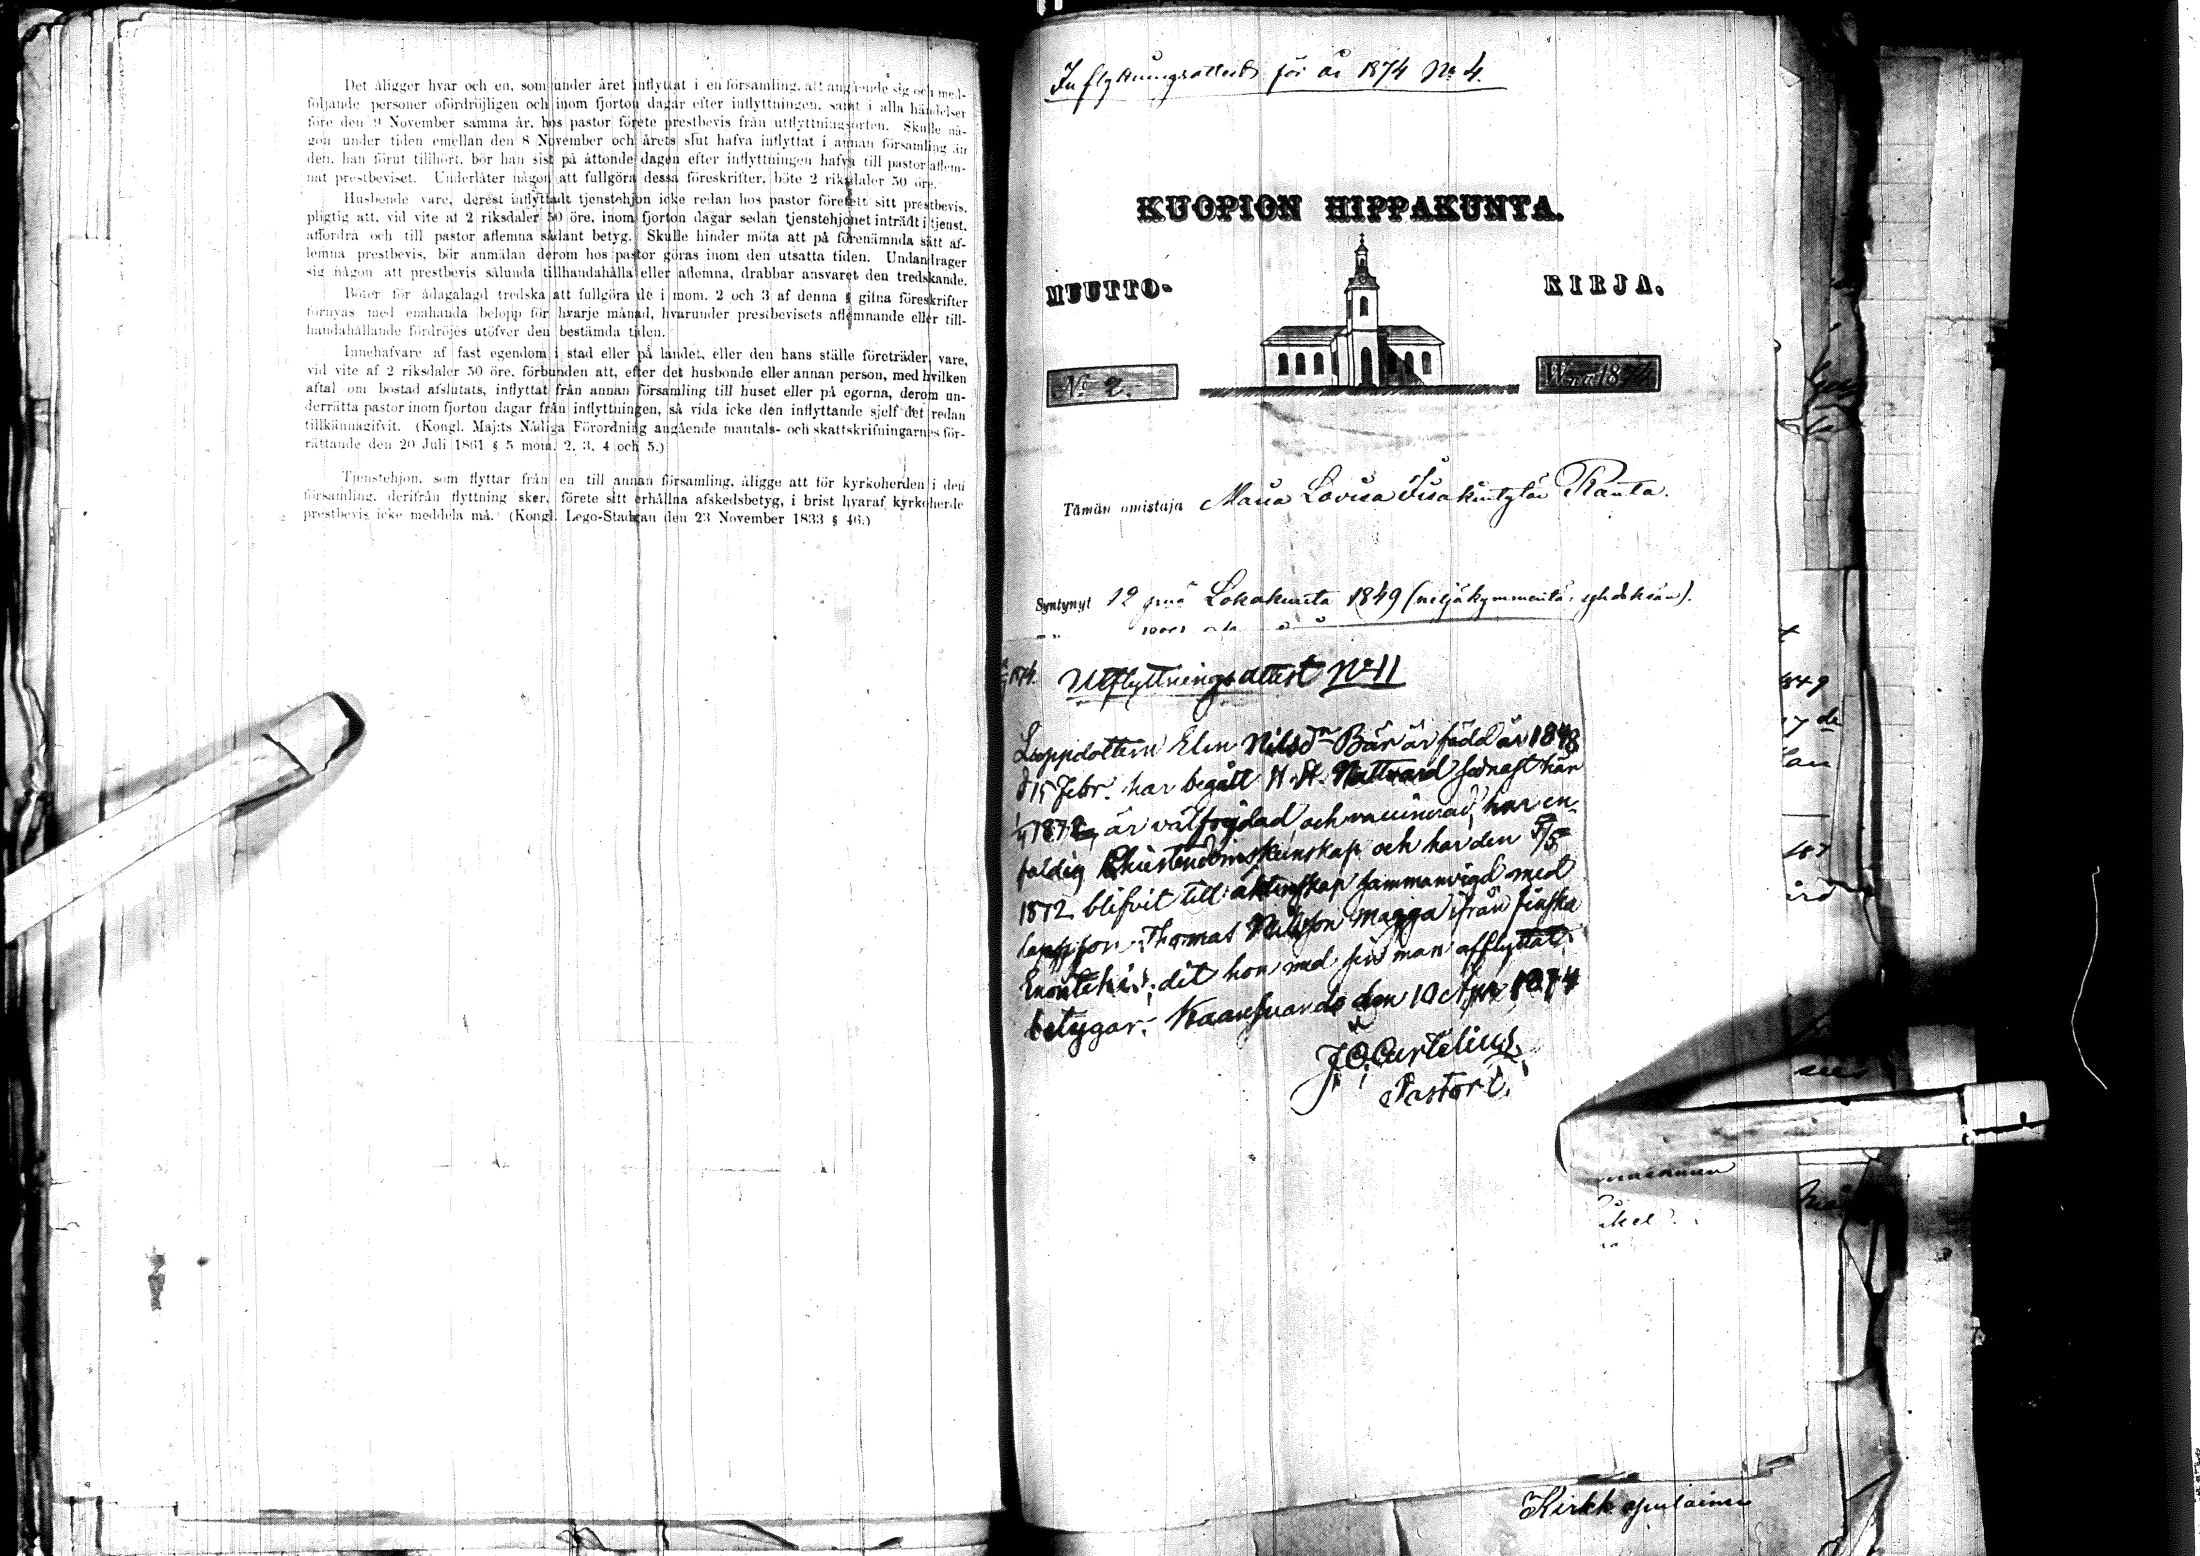 Det åligger hvar och en, som under året inflyttat i en församling, att angående sig och med-
följande personer ofördröjligen och inom fjorton dagar efter inflyttningen, samt i alla händelser
före den 9 November samma år, hos pastor förete prestbevis från utflyttningsorten. Skulle nå-
gon under tiden emellan den 8 November och årets slut hafva inflyttat i annan församling än
den, han förut tillhört, bör han sist på åttonde dagen efter inflyttningen hafva till pastor aflem-
nat prestbeviset. Underlåter någon att fullgöra dessa föreskrifter, böte 2 riksdaler 50 öre.
Husbonde vare, derest inflyttadt tjenstehjon icke redan hos pastor företett sitt prestbevis,
pligtig att, vid vite af 2 riksdaler 50 öre, inom fjorton dagar sedan tjenstehjonet inträdt i tjenst,
affordra och till pastor aflemna sådant betyg. Skulle hinder möta att på förenämnda sätt af-
lemna prestbevis, bör anmälan derom hos pastor göras inom den utsatta tiden. Undandrager
sig någon att prestbevis sålunda tillhandahålla eller aflemna, drabbar ansvaret den tredskande.
Böter för ådagalagd tredska att fullgöra de i mom. 2 och 3 af denna § gifna föreskrifter
förnyas med enahanda belopp för hvarje månad, hvarunder prestbevisets aflemnande eller till-
handahållande fördröjes utöfver den bestämda tiden.
Innehafvare af fast egendom i stad eller på landet, eller den hans ställe företräder, vare,
vid vite af 2 riksdaler 50 öre, förbunden att, efter det husbonde eller annan person, med hvilken
aftal om bostad afslutats, inflyttat från annan församling till huset eller på egorna, derom un-
derrätta pastor inom fjorton dagar från inflyttningen, så vida icke den inflyttande sjelf det redan
tillkännagifvit. (Kongl. Maj:ts Nådiga Förordning angående mantals- och skattskrifningarnes för-
rättande den 20 Juli 1861 § 5 mom. 2, 3, 4 och 5.)
Tjenstehjon, som flyttar från en till annan församling, åligge att för kyrkoherden i den
församling, derifrån flyttning sker, förete sitt erhållna afskedsbetyg, i brist hvaraf kyrkoherde
prestbevis icke meddela må. (Kongl. Lego-Stadgan den 23 November 1833 § 46.)
Inflyttningsattest för år 1874 No 4.
KUOPION HIPPAKUNTA.
MUUTTO- KIRJA.
No 2. Wna 1874
Tämän omistaja Maria Lovisa Iisakintytär Ranta.
Syntynyt 12 pnä Lokakuuta 1849 (neljäkymmentä yhdeksän).
Utflyttningsattest No 11
Lappdottern Elin Nilsdr Bär är född år 1848
d 15 Febr. har begått H. H. Nattvard sednast här
1872, är välfrejdad och vaccinerad, har en-
faldig Christendomskunskap och har den 5/5
1872 blifvit till äktenskap sammanvigd med
lappson Thomas Nilsson Magga från finska
Enontekis, dit hon med sin man afflyttat
betygar. Karesuando den 10 Apr. 1874
J O Curtelius
Pastor
Kirkk apulainen